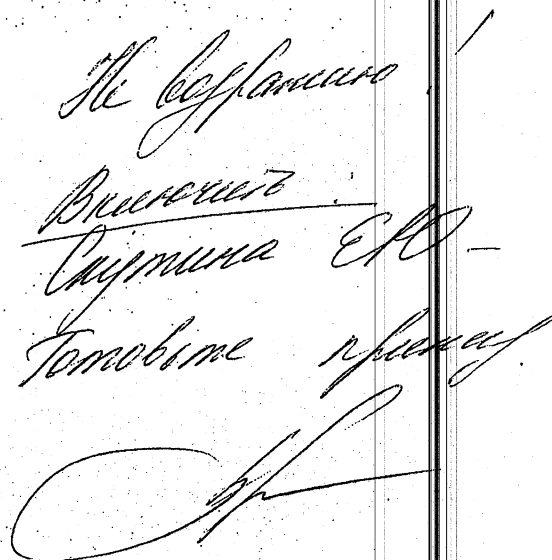 Не возражаю!
Включить:
Скутина ЕЮ –
Готовьте приказ.